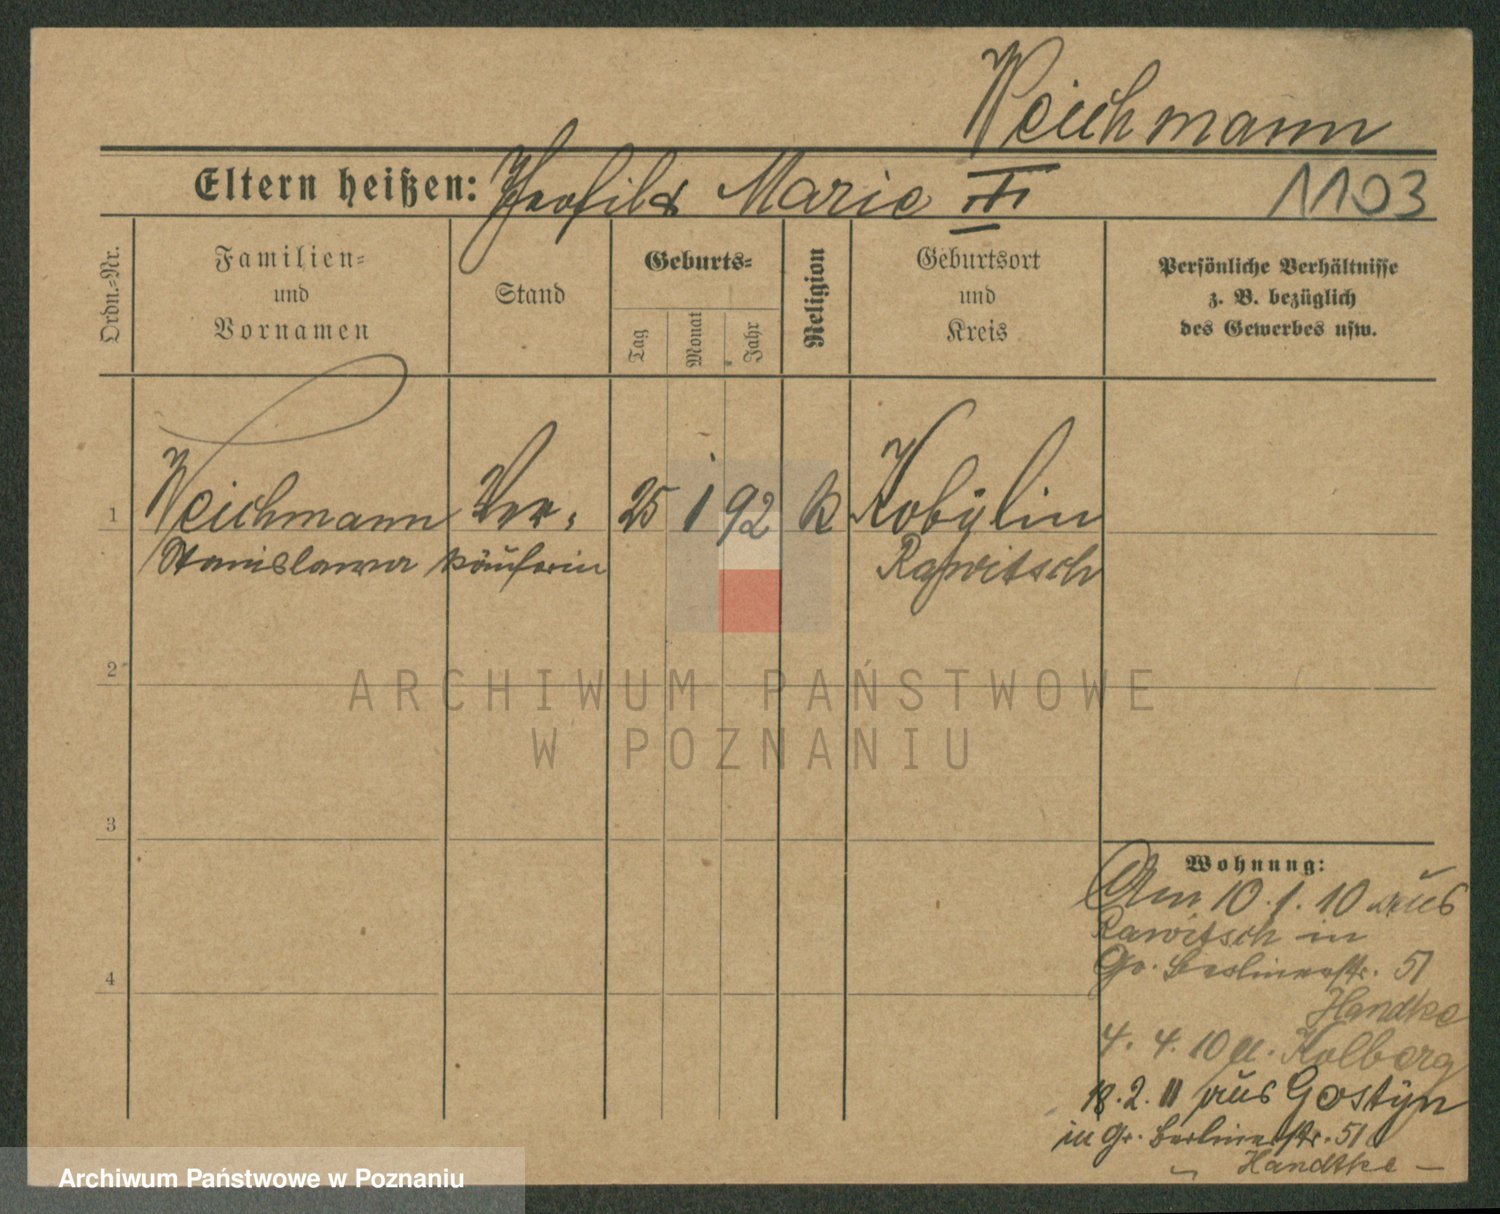 Weichmann
Eltern heißen: Theofil & Marie III 1103
Ordn.=Nr.
Familien=
und
Vornamen
Stand
Geburts=
Tag
Monat
Jahr
Religion
Geburtsort
und
Kreis
Persönliche Verhältnisse
z. B. bezüglich
des Gewerbes usw.
1 Weichmann Ver- 25 1 92 k Kobylin
Stanislawa käuferin Rawitsch
2
ARCHIWUM PAŃSTWOWE
W POZNANIU
3
Wohnung:
Am 10.1.10 aus
Rawitsch in
Gr. Berlinerstr. 51
Handtke
4
4. 4. 10 n. Kolberg
18.2.11 aus Gostyn
in Gr. Berlinerstr. 51
Handtke
Archiwum Państwowe w Poznaniu